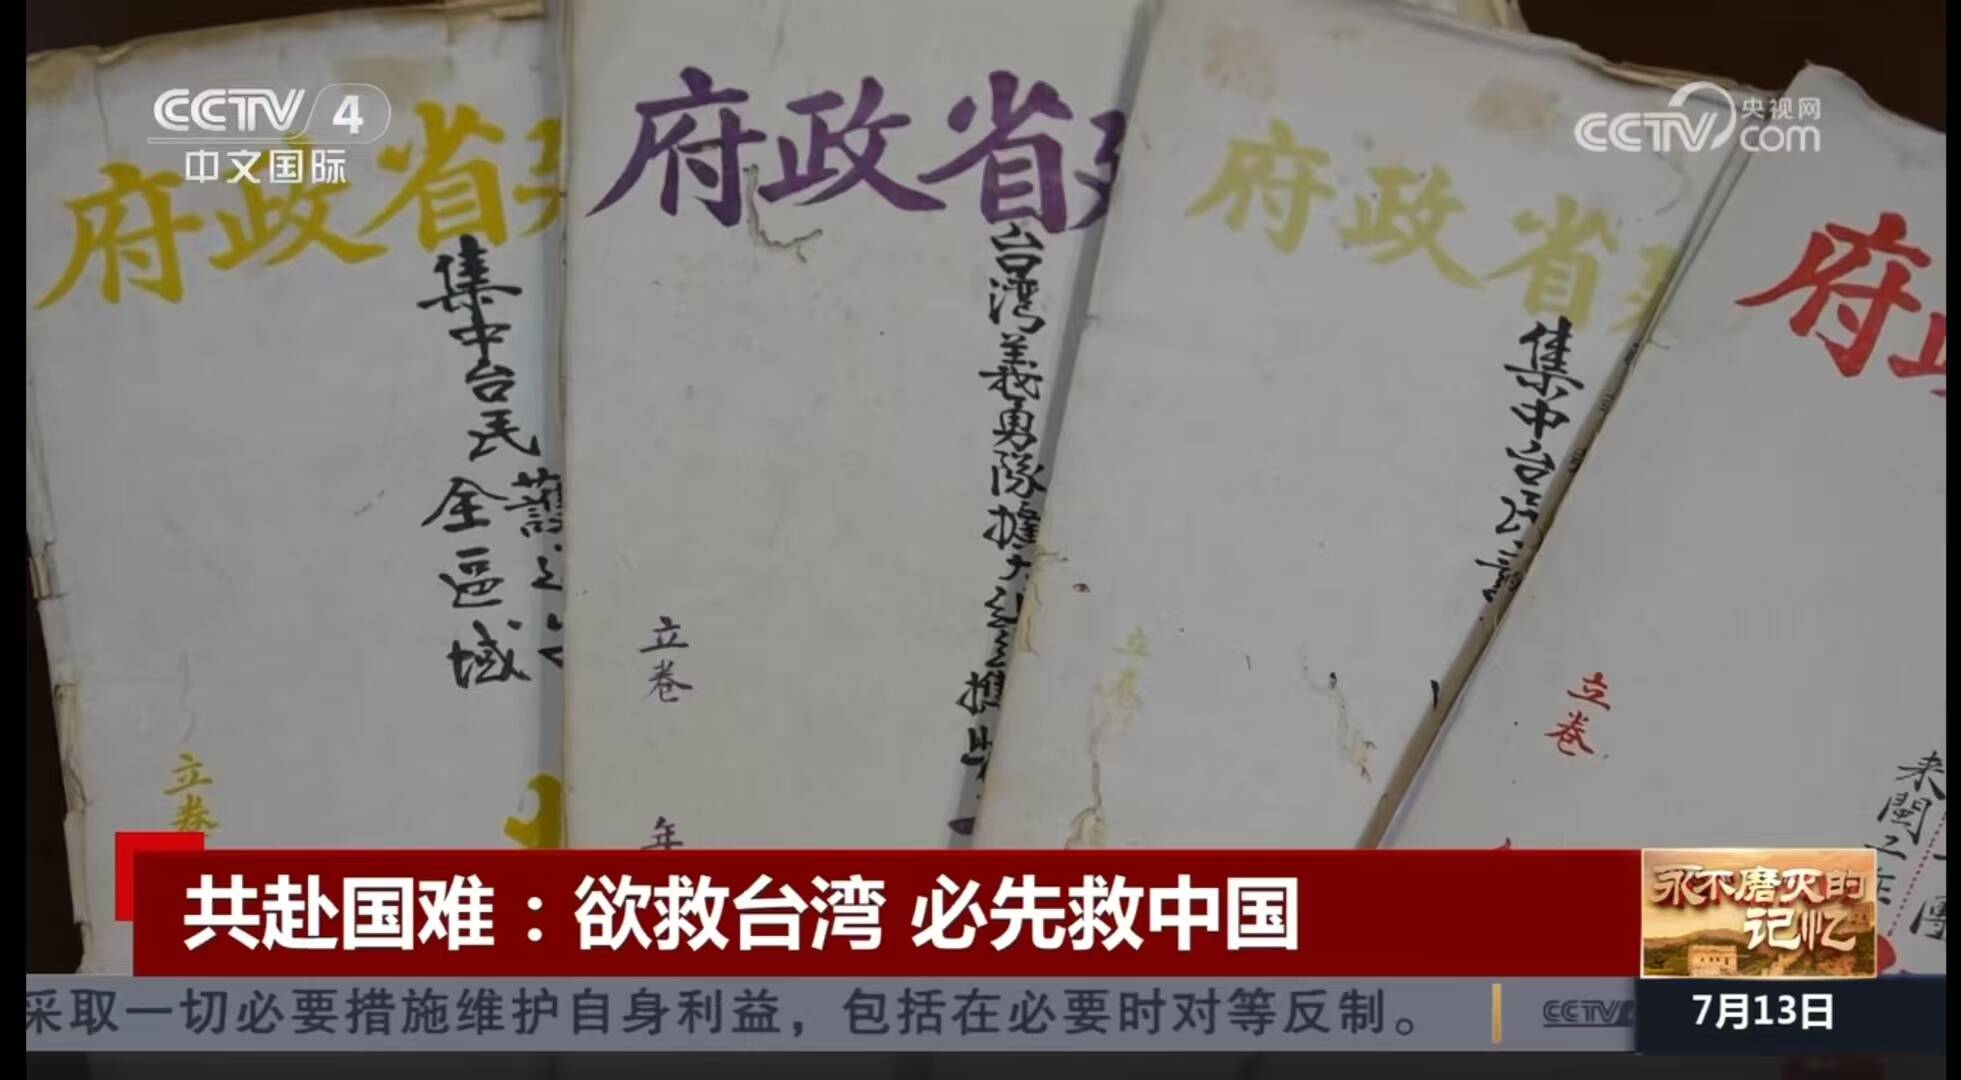 CCTV 4
中文国际
CCTV 央视网
com
府政省
集中台民
全區域
立卷
府政省
台湾義勇隊擴大
立卷
年
府政省
集中台民
立卷
府政
立卷
来閩工作
團
共赴国难：欲救台湾 必先救中国
永不磨灭的
记忆
采取一切必要措施维护自身利益，包括在必要时对等反制。
CCTV
7月13日